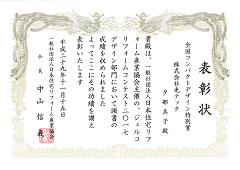 表彰状
全国コンパクトデザイン特別賞
株式会社光テック
夕部美子殿
貴殿は、一般社団法人日本住宅リフ
ォーム産業協会主催の、ジェルコ
リフォームコンテスト二〇一七
デザイン部門において頭書の
成績を収められました
よってここにその功績を讃え
表彰いたします
平成二十九年十一月十五日
一般社団法人日本住宅リフォーム産業協会
会長 中山信義